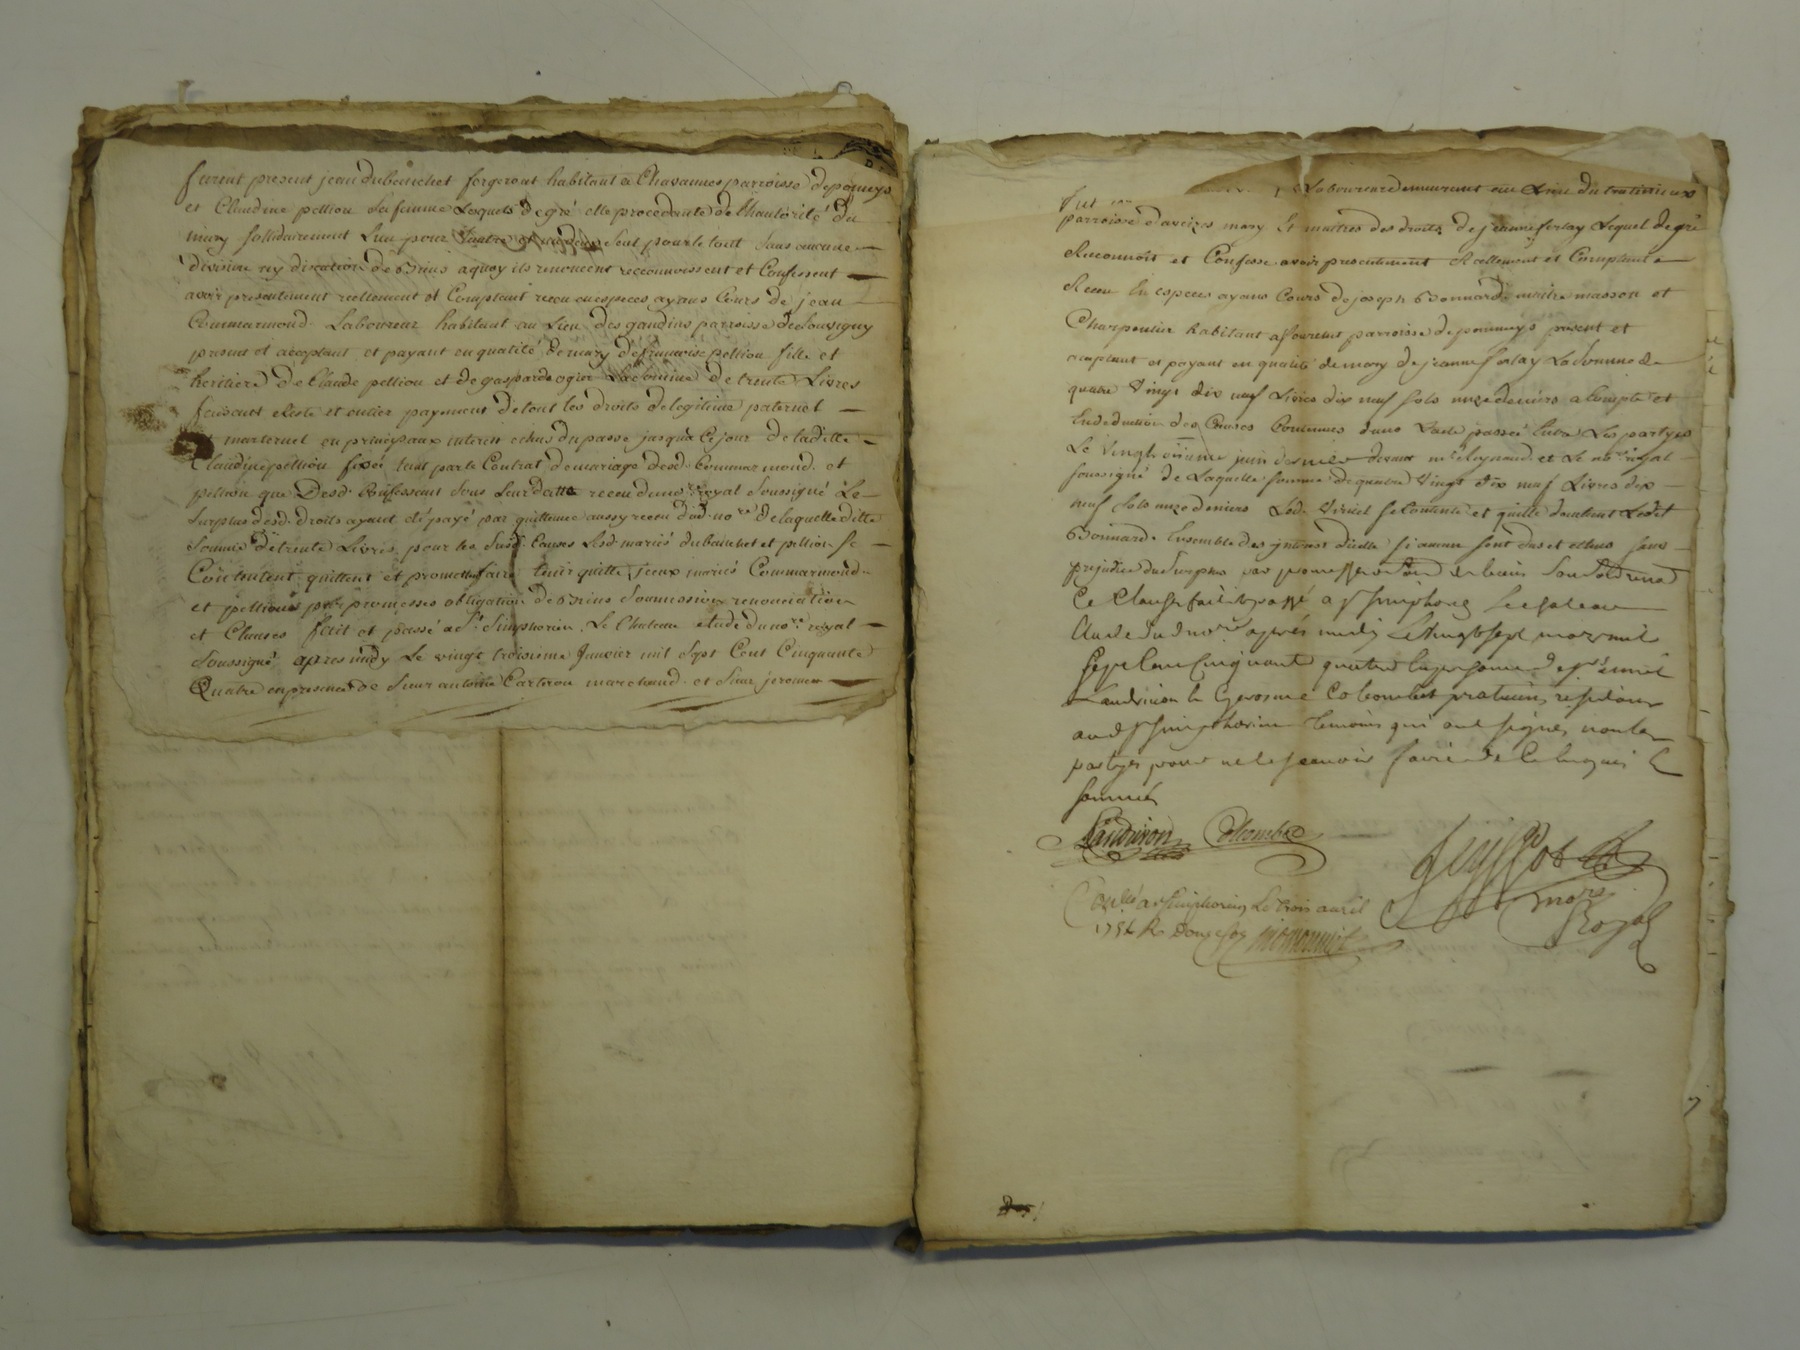 furent present jean dubanchet forgeront habitant a Chavannes parroisse de pomeys
et Claudine pettiou sa femme Lesquels de gré elle procedante de Lhautorité du
mary sollidairement Lun pour Lautre et un deux seul pour le tout sans aucune
division ny discution de Biens a quoy ils renoncent reconnoissent et Confessent
avoir presentement reellement et Comptant receu en especes ayans Cours de jean
Commarmond Laboureur habitant au Lieu des gaudins parroisse de Souvigny
present et acceptant et payant en quatité de mary de françoise pettiou fille et
heritiere de Claude pettiou et de gasparde ogier La somme de trente Livres
faisant reste et entier payement de tout les droits de legitime paternel
et marternel en principaux interets echus du passé jusqua Ce jour de laditte
Claudine pettiou fixés tant par le Contrat de mariage desd. Commarmond et
pettiou que Desd. Confessant sous Leur datte receu du no.re royal soussigné Le
surplus desd. droits ayant été payé par quittance aussy receu dud. no.re De laquelle ditte
somme de trente Livres pour les susd. Causes Lesd. mariés dubanchet et pettiou se
Contentent quittent et promettent faire tenir quitte Iceux mariés Commarmond
et pettiou par promesses obligation de Biens soumission renonciation
et Clauses fait et passé a S.t Simphorien Le Chateau etude du no.re royal
soussigné apres midy Le vingt troisieme Janvier mil sept Cent Cinquante
Quatre en presence de sieur antoine Carteron marchand et sieur jerome
fut Laboureur demeurent au Lieu du
parroisse daveizes mary Et maitres des droits de jeanne ferlay Lequel de gré
Reconnoit et Confesse avoir presentement Reellement et Comptant
Receu En especes ayans Cours de joseph Bonnard maitre masson et
Charpentier habitant a parroisse de pommeys present et
aceptant et payant en qualité de mary de jeanne ferlay La Somme de
quatre Vingt dix neuf Livres dix neuf sols onze deniers a Compte et
En deduction des Causes Contenues dans Lacte passée Entre Les partyes
Le Vingt juin dernier devant m.e Reynaud et Le no.re royal
soussigné de Laquelle somme De quatre Vingt dix neuf Livres dix
neuf sols onze deniers Led. se Contente et quitte Led.t
Bonnard Ensemble des interest dicelle si aucun sont dus et echus sans
prejudice du surplus par promesses
Ce Clauses fait et passé a s.t simphorien Le chateau
Etude dud. no.re apres midy Le Vingt sept mars mil
sept Cent Cinquante quatre En presence de s.r
Landivion et Gerosme Colombet praticiens residans
aud s.t simphorien temoins qui ont signés non les
partyes pour ne le scavoir faire de Ce Enquis et
sommés
Landivion Colombet
no.re
Royal
Con.lé a s.t simphorien Le trois avril
1754 R. Douze sols